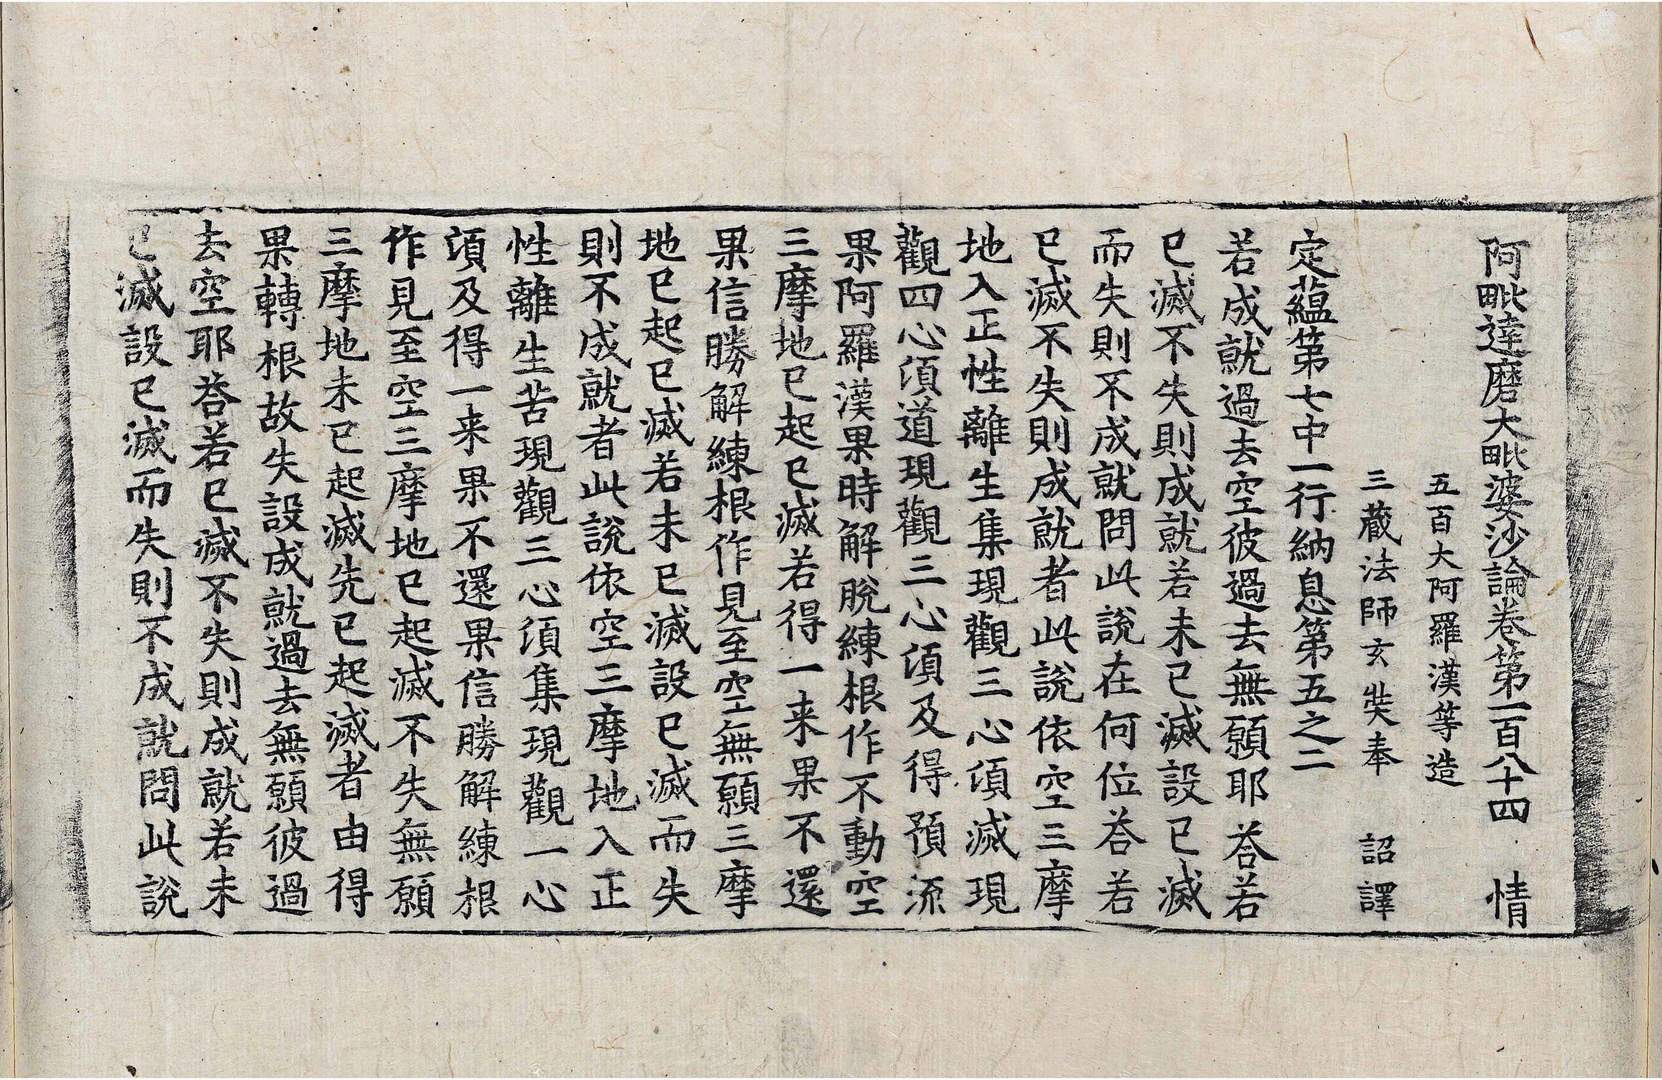 阿毗達磨大毗婆沙論卷第一百八十四　情
五百大阿羅漢等造
三藏法師玄奘奉　詔譯
定蘊第七中一行納息第五之二
若成就過去空彼過去無願耶荅若
已滅不失則成就若未已滅設已滅
而失則不成就問此說在何位荅若
已滅不失則成就者此說依空三摩
地入正性離生集現觀三心湏滅現
觀四心湏道現觀三心湏及得預流
果阿羅漢果時解脫練根作不動空
三摩地已起已滅若得一来果不還
果信勝解練根作見至空無願三摩
地已起已滅若未已滅設已滅而失
則不成就者此說依空三摩地入正
性離生苦現觀三心湏集現觀一心
湏及得一来果不還果信勝解練根
作見至空三摩地已起滅不失無願
三摩地未已起滅先已起滅者由得
果轉根故失設成就過去無願彼過
去空耶荅若已滅不失則成就若未
已滅設已滅而失則不成就問此說